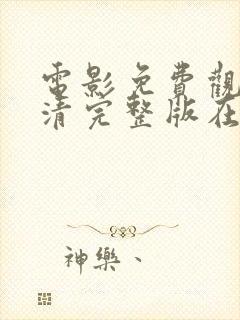 電影免費觀
清完整版在
神樂、